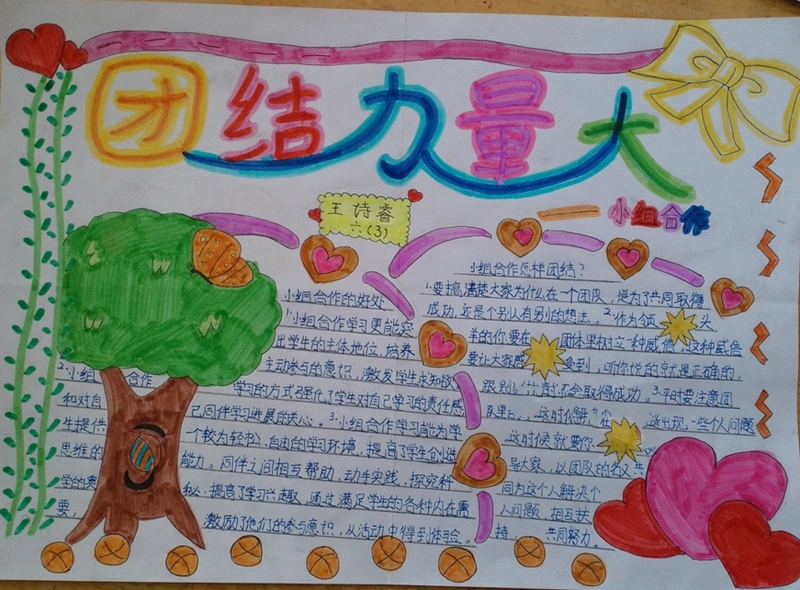 团结力量大
小组合作
王诗睿
六(3)
小组合作的好处
1.小组合作学习更能突
出学生的主体地位,培养
主动参与的意识,激发学生求知欲
2.小组合作 学习的方式强化了学生对自己学习的责任感
和对自 己同伴学习进展的关心。3.小组合作学习能为学
生提供 个较为轻松、自由的学习环境,提高了学生创造
思维的 能力。同伴之间相互帮助,动手实践,探究种
学的奥 秘,提高了学习兴趣,通过满足学生的各种内在需
要, 激励了他们的参与意识,从活动中得到体验。
小组合作怎样团结?
1.要搞清楚大家为什么在一个团队,是为了共同取得
成功,还是个别人有别的想法。2.作为领 头
羊的你要在 团体里树立一种威信,这种威信
要让大家感 受到,听你说的就是正确的,
跟别 还会取得成功。3.平时要注意团
队里 这时你 出现一些个人问题
这时候就要你
导大家,以团队的名义共
同为这个人解决个
人问题,相互扶
持, 共同努力。